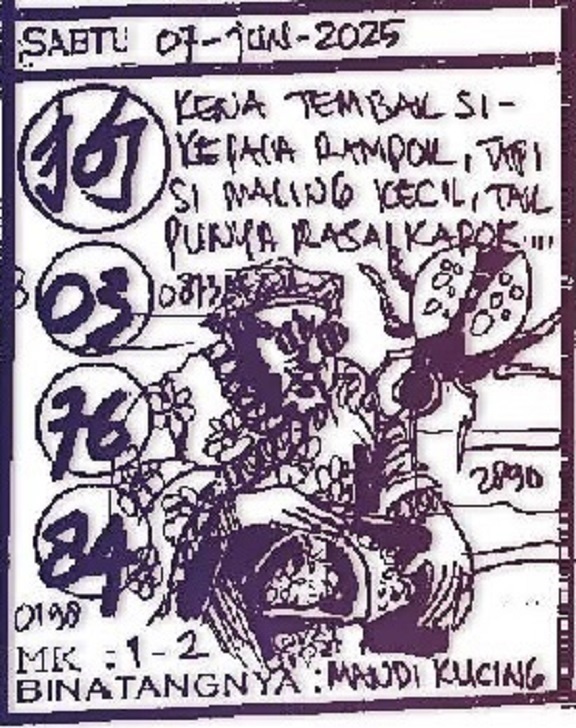 SABTU 07-JUN-2025
狗
KENA TEMBAK SI-
KEPALA RAMPOK, TAPI
SI MALING KECIL, TAK
PUNYA RASA KAPOK....
03
76
84
2890
0198
MK : 1-2
BINATANGNYA : MANDI KUCING